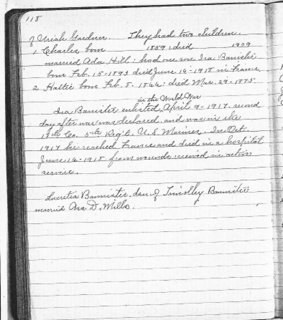 118
of Uriah Gardner. They had two children.
1 Charles born 1859 died 1929
married Ada Hill: had one son Ira Banister
born Feb. 15-1893 died June 16-1918 in France
2 Hattie born Feb. 5-1862. died Mar. 29-1935.
in the World War
Ira Banister enlisted April 9-1917. second
day after war was declared, and was in the
Co. 5th Reg't. U.S. Marines. In Oct
1917 he reached France and died in a hospital
June 16-1918 from wounds received in active
service.
Banister, son of Banister
married D. Mills.